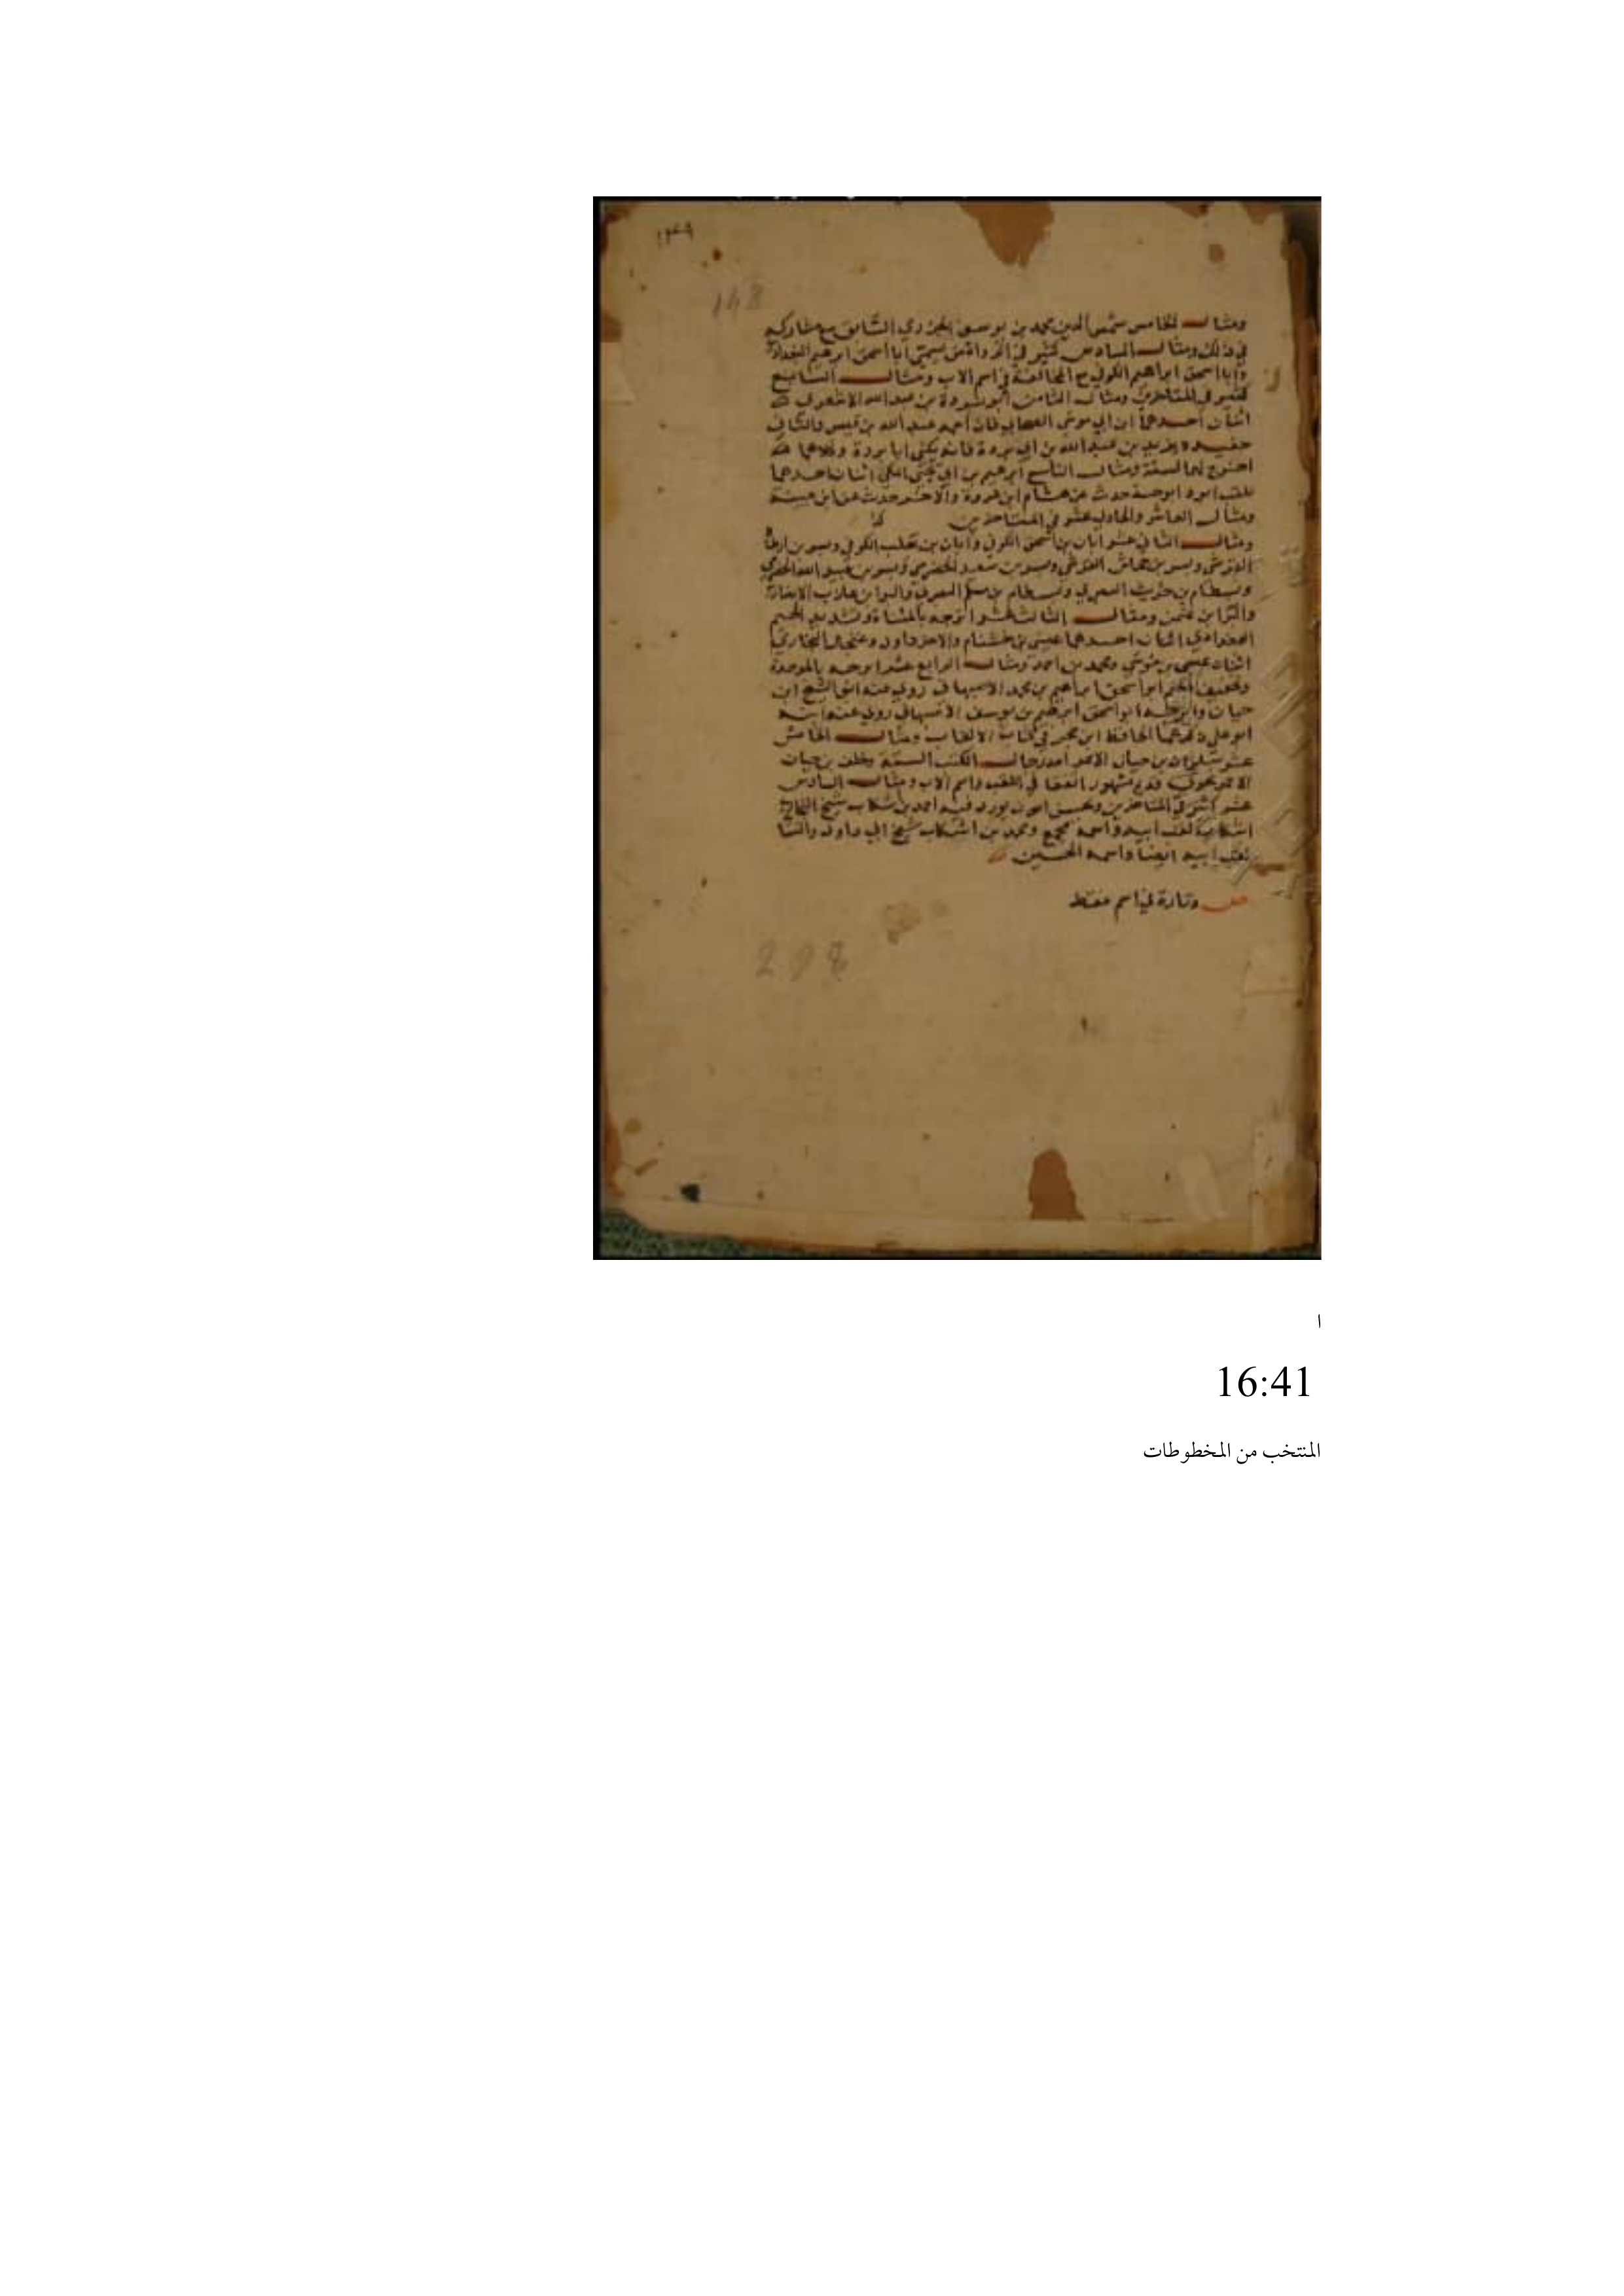 ١٤٩
148
ومثال الخامس شمس الدين محمد بن يوسف الجزري السابق مع مشاركه
في ذلك ومثال السادس كثير في الرواة من يسمى ابا اسحق ابرهيم البغدادي
وابا اسحق ابراهيم الكوفي مع المخالفة في اسم الاب ومثال السابع
كثير في المتاخرين ومثال الثامن ابو بردة بن عبد الله الاشعري
اثنان احدهما ابن ابي موسى الصحابي فان اسمه عبد الله بن قيس والثاني
حفيده بريد بن عبد الله بن ابي بردة فانه يكنى ابا بردة وكلاهما
احتج لهما الستة ومثال التاسع ابرهيم بن ابي يحيى المكي اثنان احدهما
ابوه ابو حية حدث عن هشام ابن عروة والاخر حدث عن ابن عيينة
ومثال العاشر والحادي عشر في المتاخرين
ومثال الثاني عشر ابان بن اسحق الكوفي وابان بن تغلب الكوفي وبسر بن ارطاة
القرشي وبسر بن جحاش القرشي وبسر بن سعيد الحضرمي وبسر بن عبيد الله الحضرمي
وبسطام بن حريث البصري وبسطام بن مسلم البصري والبرا بن عازب الانصاري
والبرا بن ومثال الثالث عشر اترجه بالمثناة وتشديد الجيم
البغدادي اثنان احدهما عيسى بن خشنام والاخر داود وغنجار البخاري
اثنان عيسى بن موسى ومحمد بن احمد ومثال الرابع عشر ابرجه بالموحدة
وتخفيف الجيم ابو اسحق ابراهيم بن محمد الاصبهاني روى عنه ابو الشيخ ابن
حيان وابرجه ابو اسحق ابرهيم بن يوسف الاصبهاني روى عنه ابنه
ابو علي ذكرهما الحافظ ابن حجر في كتاب الالقاب ومثال الخامس
عشر سليمان بن حيان الاحمر احد رجال الكتب الستة وخلف بن حيان
الاحمر نحوي قديم مشهور اتفقا في اللقب واسم الاب ومثال السادس
عشر كثير في المتاخرين يورد فيه احمد بن اشكاب شيخ البخاري
اشكاب لقب ابيه واسمه مجمع ومحمد بن اشكاب شيخ ابي داود والنسا
لقب ابيه ايضا واسمه الحسين
ص وتارة في اسم فقط
298
ا
16:41
المنتخب من المخطوطات